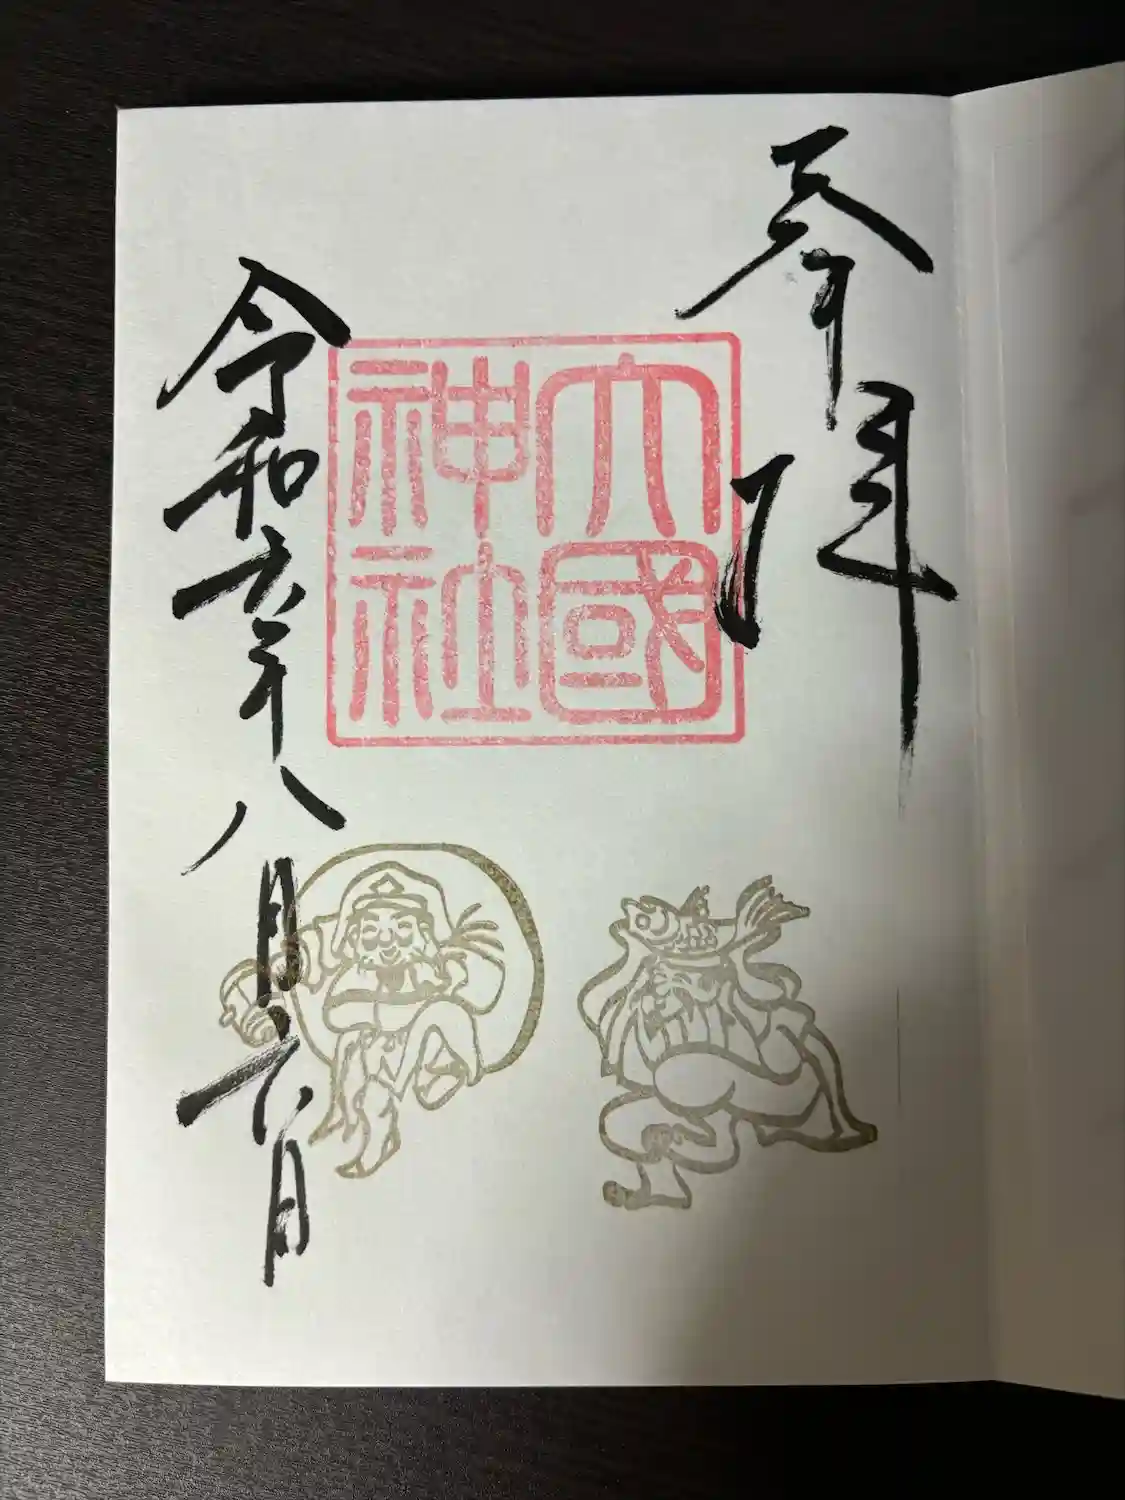 奉拝
大國
神社
令和六年八月六日